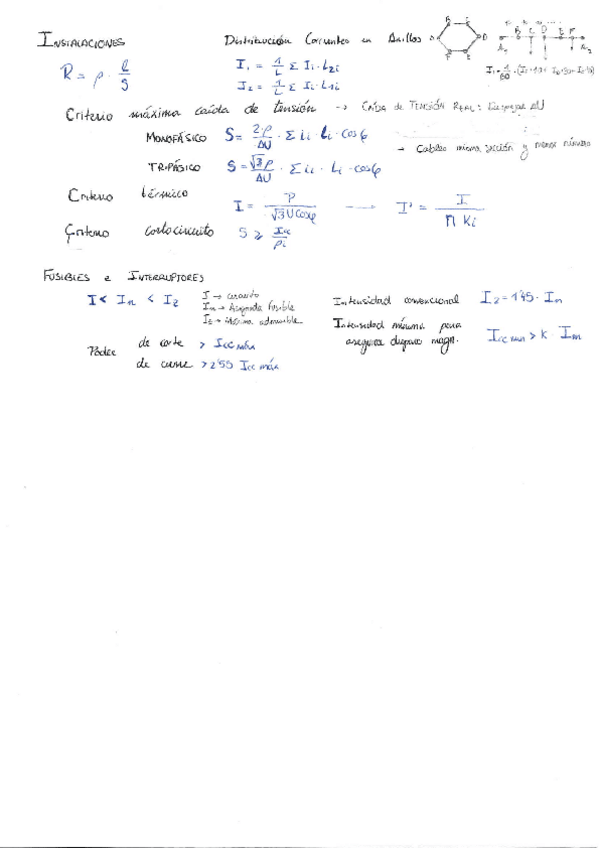 INSTALACIONES
Distribución Corrientes en Anillos
R = ρ · l/S
I₁ = 1/L Σ Ii · L2i
I₂ = 1/L Σ Ii · L1i
Criterio máxima caída de tensión → CAÍDA DE TENSIÓN REAL: Despejar ΔU
MONOFÁSICO S = 2·ρ/ΔU · Σ Ii · Li · cosφ
→ Cables misma sección y menos número
TRIFÁSICO S = √3 ρ/ΔU · Σ Ii · Li · cosφ
Criterio térmico I = P/√3 U cosφ → I' = I/Π Ki
Criterio cortocircuito S ≥ Icc/ρi
FUSIBLES e INTERRUPTORES
I < In < Iz
I → circuito
In → Asignada Fusible
Iz → Máxima admisible
Intensidad convencional I2 = 1'45 · In
Intensidad mínima para asegurar disparo magn. Icc min > K · Im
Poder de corte > Icc máx
de cierre > 2'55 Icc máx